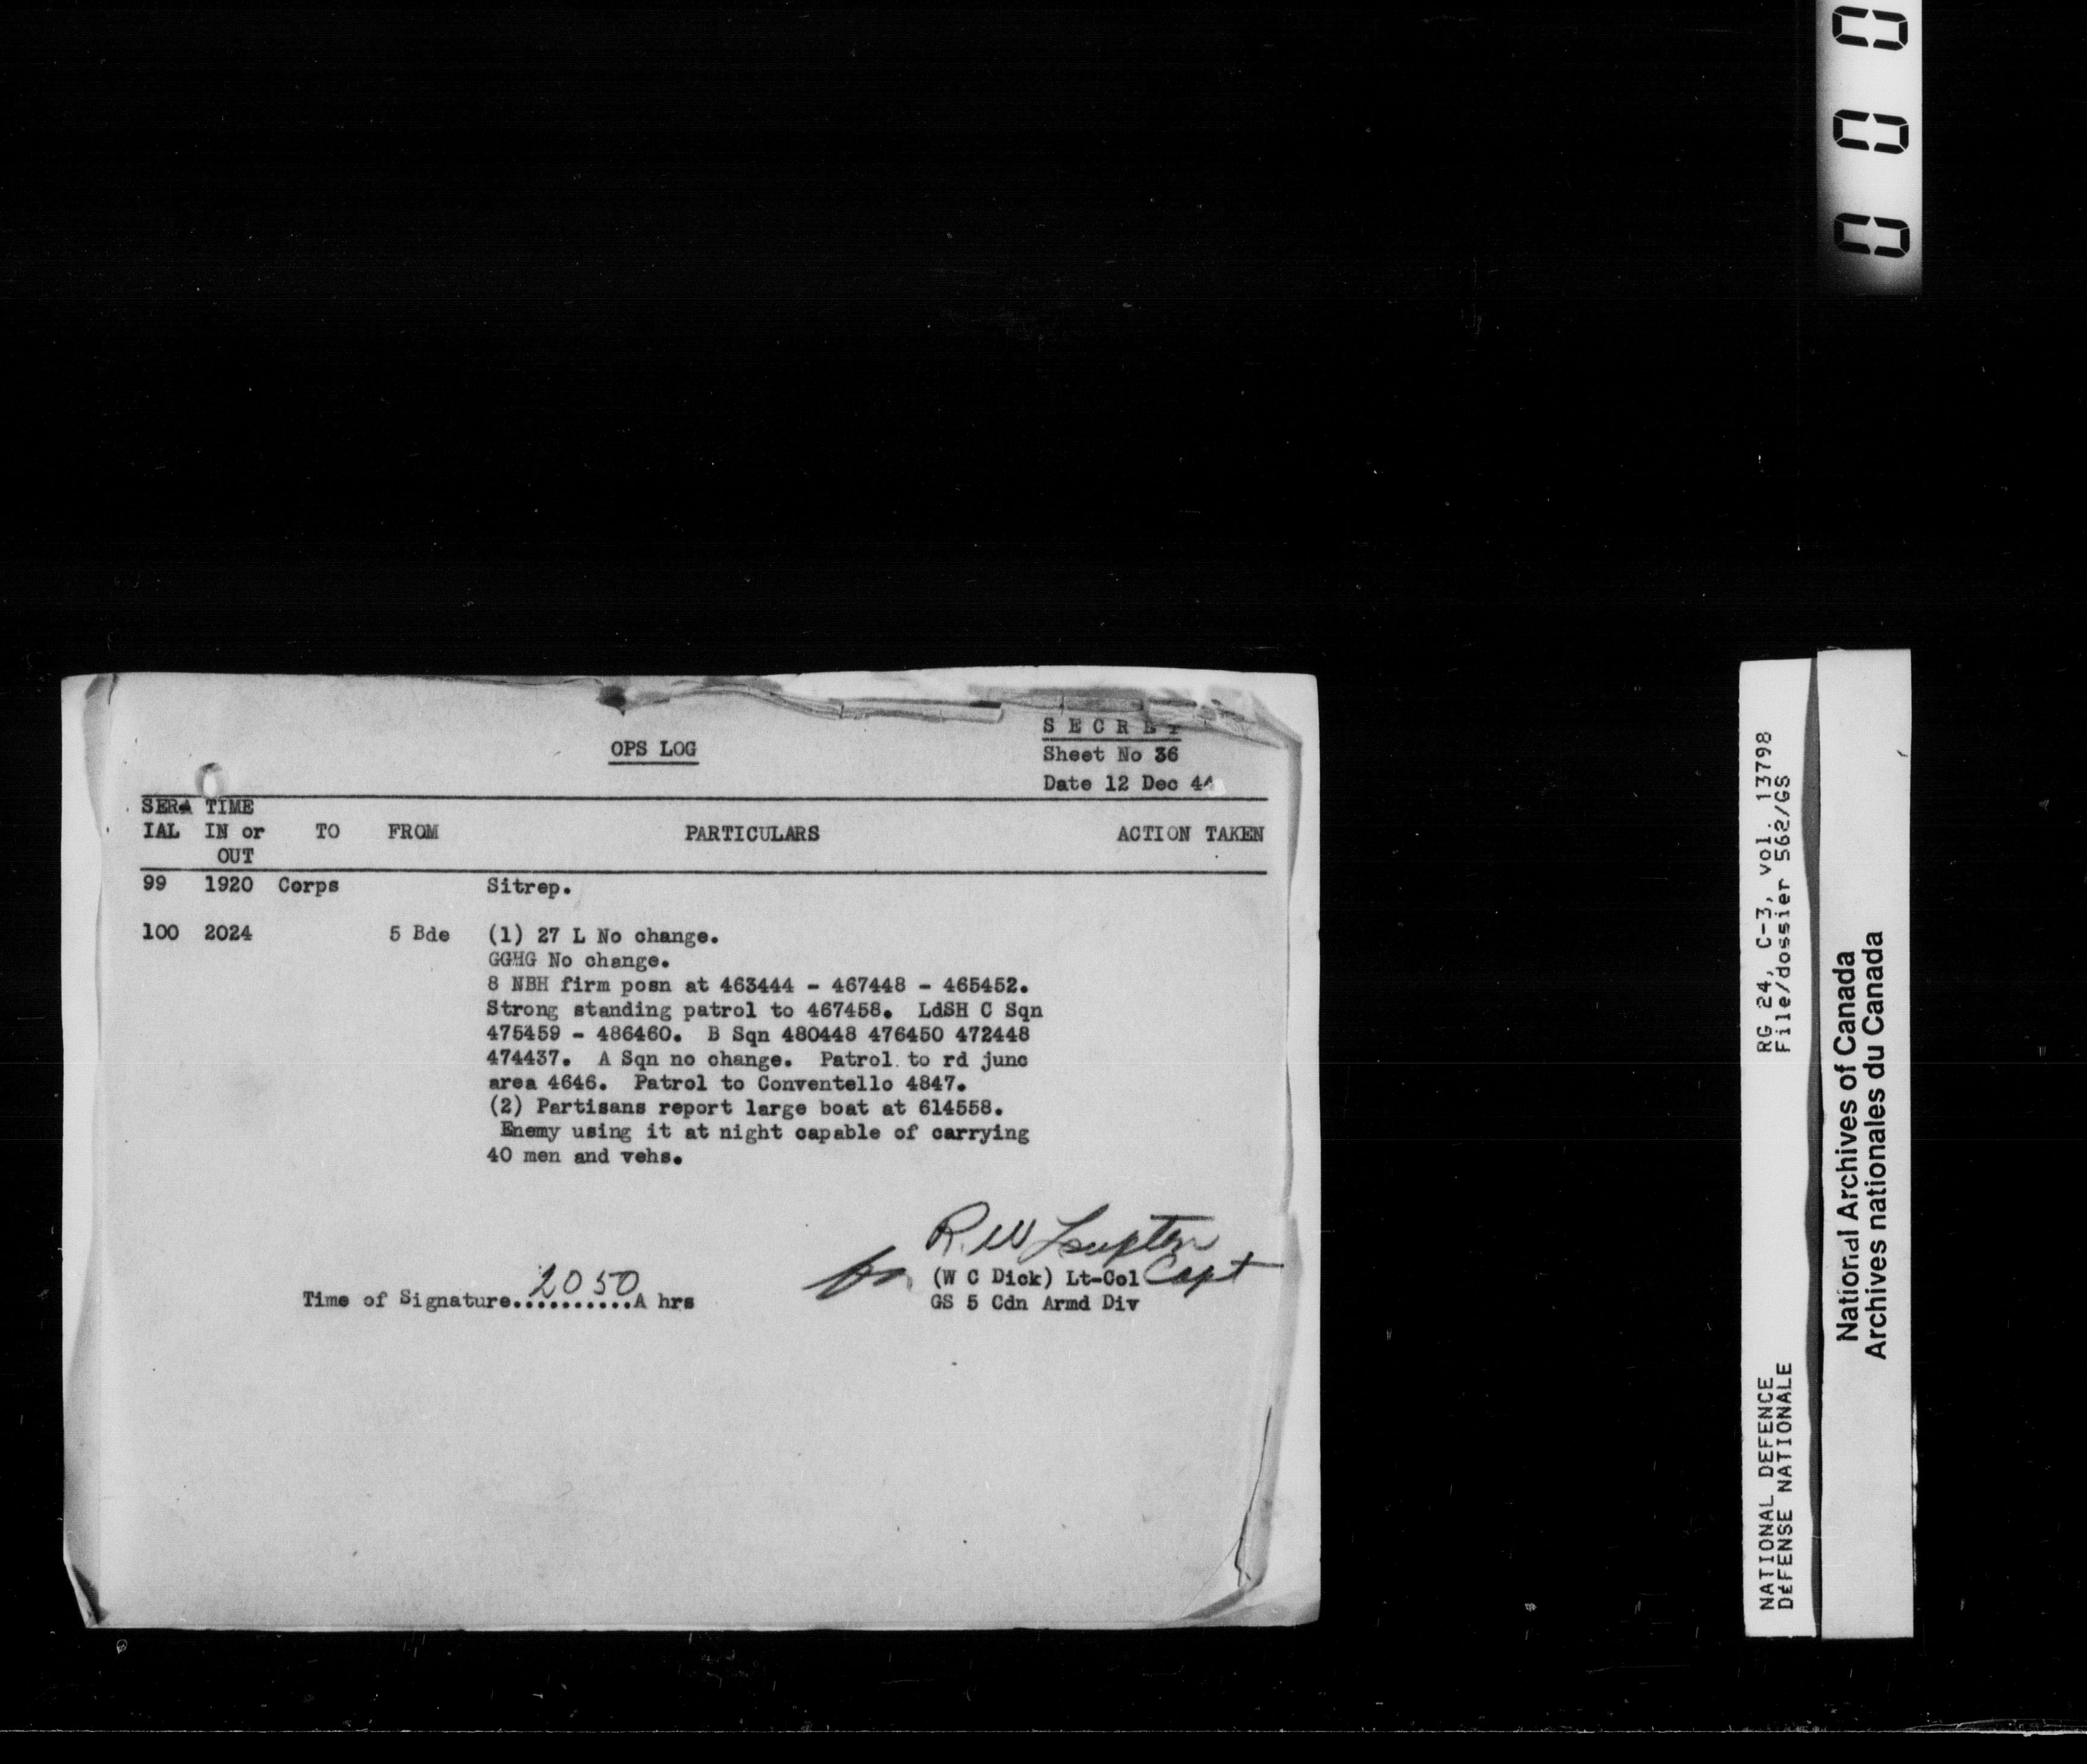 0 0 0
OPS LOG
SECRET
Sheet No 36
Date 12 Dec 44
SERA TIME
IAL IN or TO FROM PARTICULARS ACTION TAKEN
OUT
99 1920 Corps Sitrep.
100 2024 5 Bde (1) 27 L No change.
GGHG No change.
8 NBH firm posn at 463444 - 467448 - 465452.
Strong standing patrol to 467458. LdSH C Sqn
475459 - 486460. B Sqn 480448 476450 472448
474437. A Sqn no change. Patrol to rd junc
area 4646. Patrol to Conventello 4847.
(2) Partisans report large boat at 614558.
Enemy using it at night capable of carrying
40 men and vehs.
R.W Lupton
for (W C Dick) Lt-Col Capt
Time of Signature..2050..A hrs
GS 5 Cdn Armd Div
RG 24, C-3, vol. 13798
File/dossier 562/GS
NATIONAL DEFENCE
DÉFENSE NATIONALE
National Archives of Canada
Archives nationales du Canada